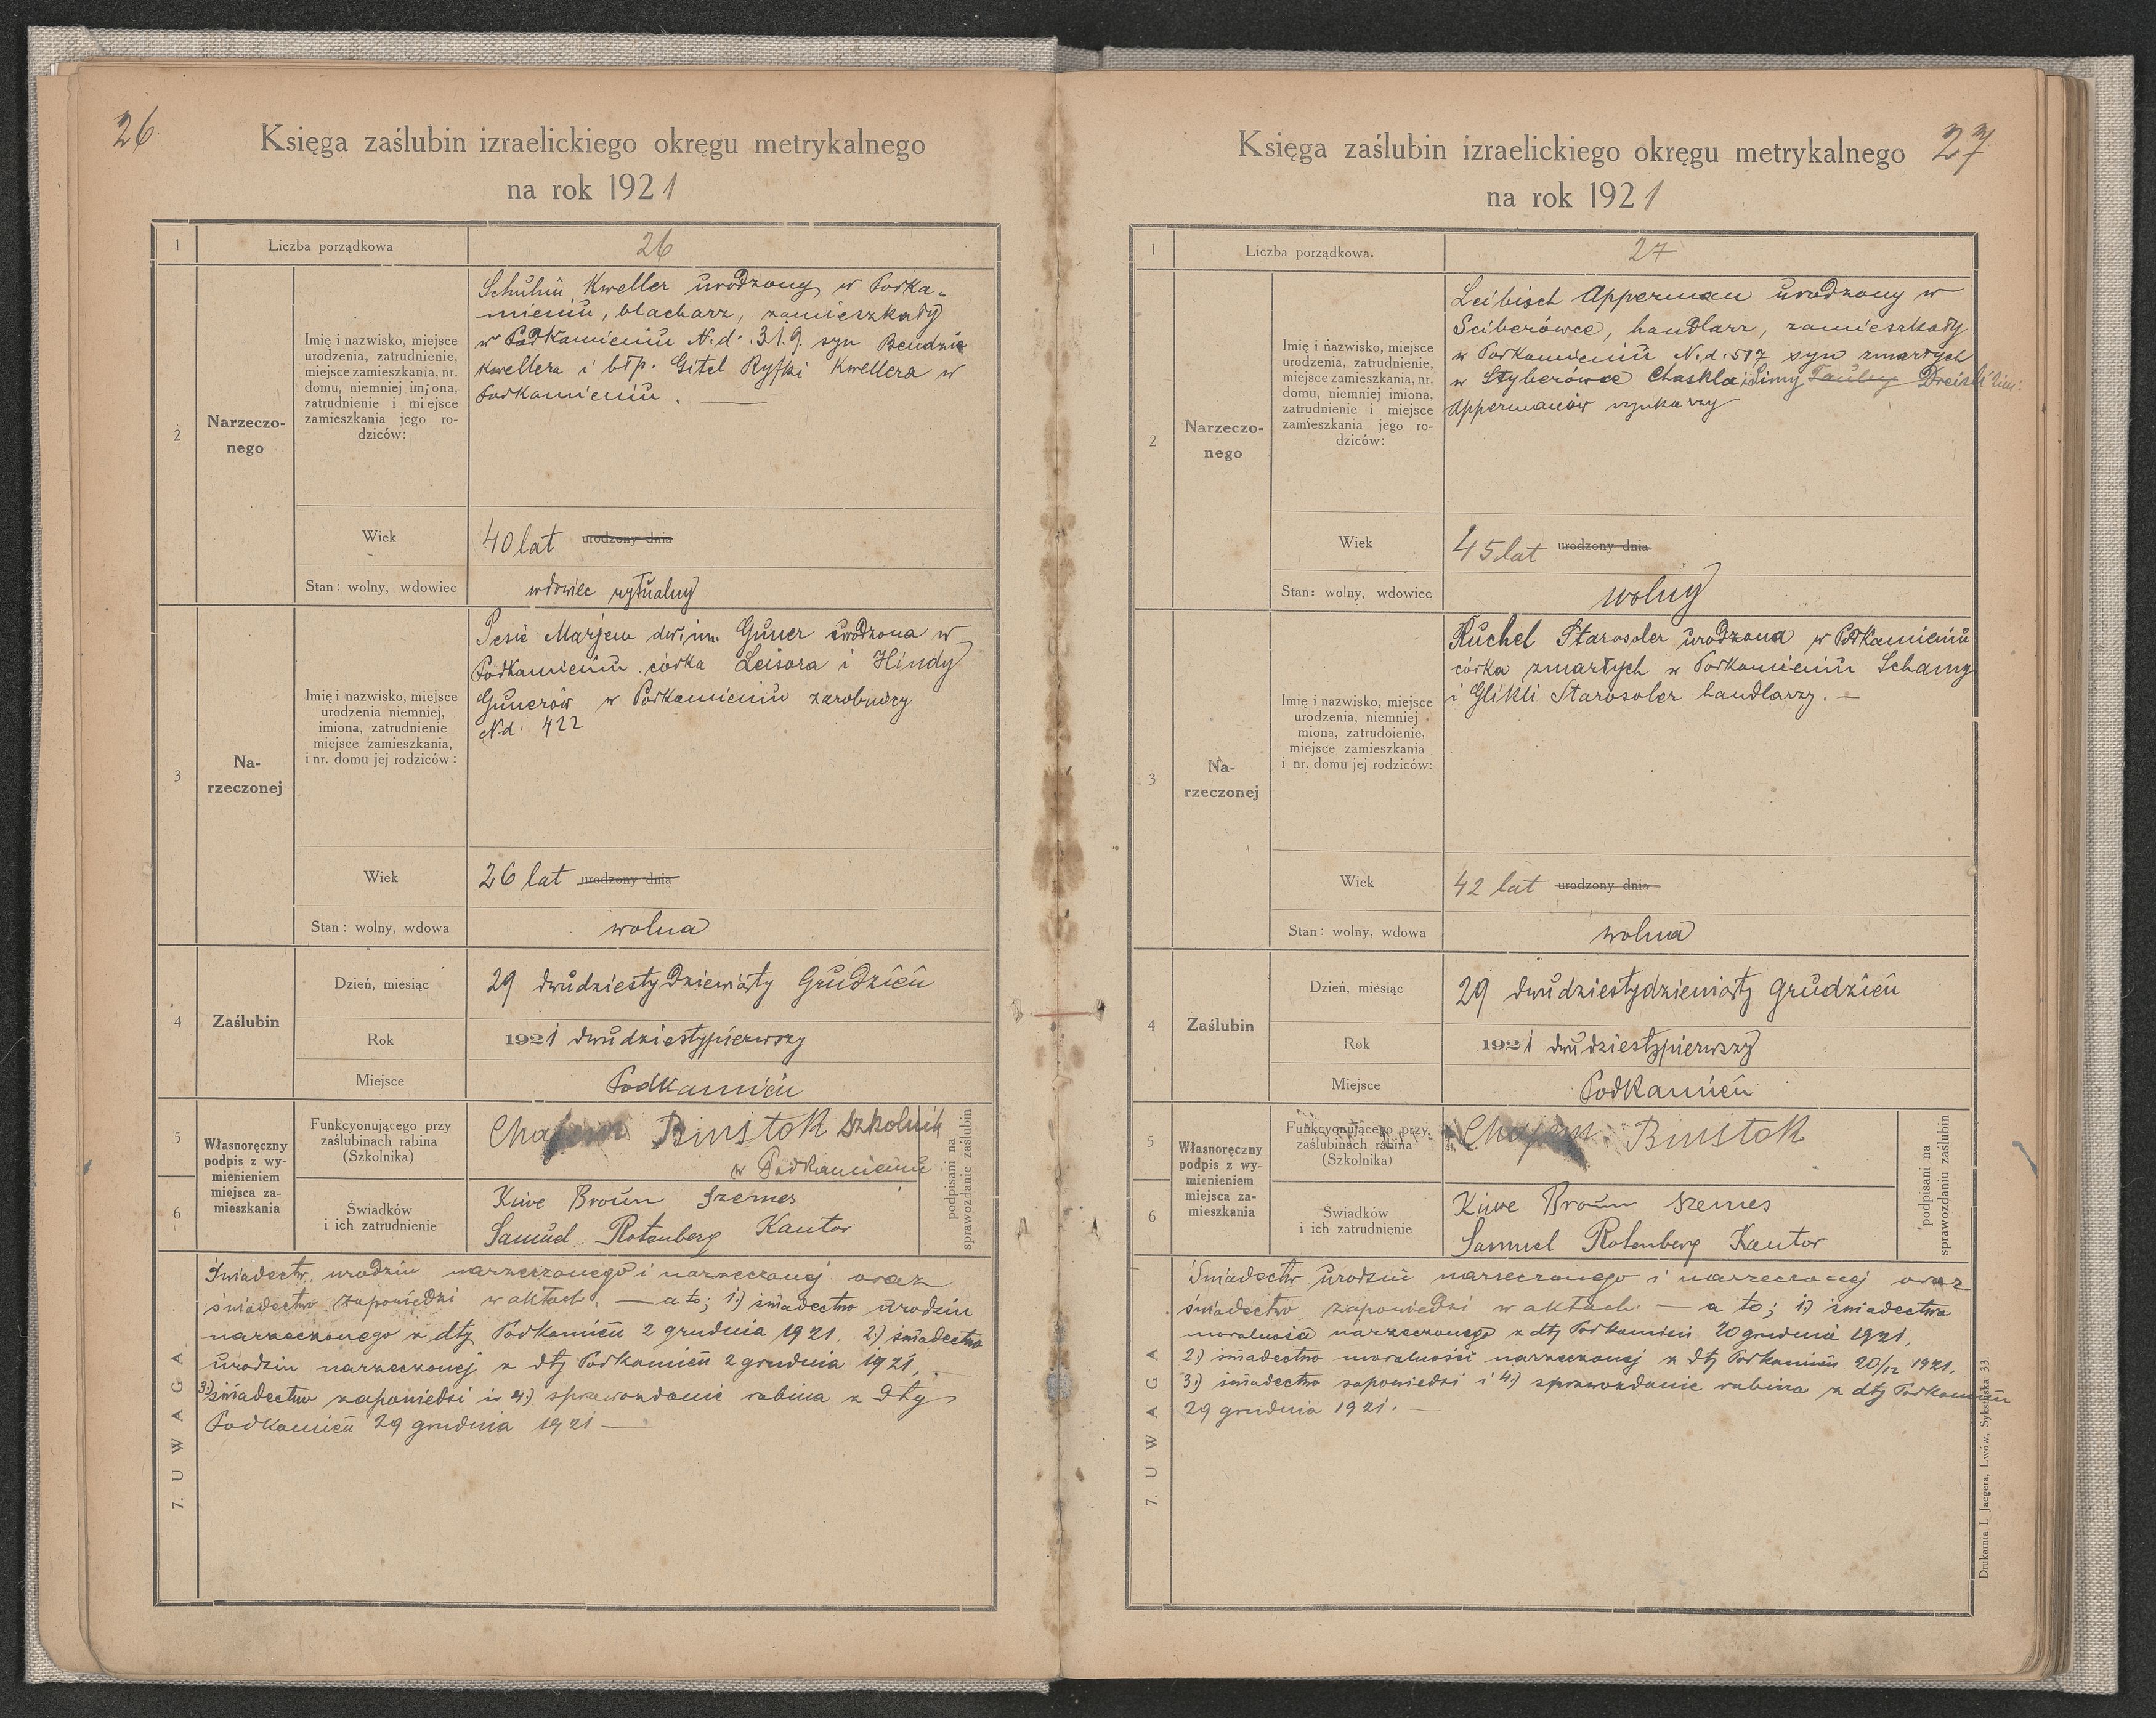 26
Księga zaślubin izraelickiego okręgu metrykalnego
na rok 1921
1
Liczba porządkowa
26
2
Narzeczo-
nego
Imię i nazwisko, miejsce
urodzenia, zatrudnienie,
miejsce zamieszkania, nr.
domu, niemniej imiona,
zatrudnienie i miejsce
zamieszkania jego ro-
dziców:
Kweller urodzony w Podka-
mieniu, blacharz, zamieszkały
w Podkamieniu N.d. 319. syn Bendzie
Kwellera i błp. Gitel Ryfki Kwellera w
Podkamieniu. —
Wiek
40 lat urodzony dnia
Stan: wolny, wdowiec
wdowiec rytualny
3
Na-
rzeczonej
Imię i nazwisko, miejsce
urodzenia niemniej,
imiona, zatrudnienie
miejsce zamieszkania,
i nr. domu jej rodziców:
Pesie Marjem dw. im. Guner urodzona w
Podkamieniu córka Leisora i Hindy
Gunerów w Podkamieniu zarobnicy
Nd. 422
Wiek
26 lat urodzony dnia
Stan: wolny, wdowa
wolna
4
Zaślubin
Dzień, miesiąc
29 dwudziesty dziewiąty Grudzień
Rok
1921 dwudziestypierwszy
Miejsce
Podkamień
5
6
Własnoręczny
podpis z wy-
mienieniem
miejsca za-
mieszkania
Funkcyonującego przy
zaślubinach rabina
(Szkolnika)
Chajem Binstok Szkolnik
w Podkamieniu
Świadków
i ich zatrudnienie
Kiwe Broun Szemes
Samuel Rotenberg Kantor
podpisani na
sprawozdanie zaślubin
7. UWAGA
Świadectw. urodzin narzeczonego i narzeczonej oraz
świadectwo zapowiedzi w aktach. — a to; 1.) świadectwo urodzin
narzeczonego z dty Podkamień 2 grudnia 1921. 2.) świadectwo
urodzin narzeczonej z dty Podkamień 2 grudnia 1921,
3.) świadectwo zapowiedzi i 4.) sprawozdanie rabina z dty
Podkamień 29 grudnia 1921 —
27
Księga zaślubin izraelickiego okręgu metrykalnego
na rok 1921
1
Liczba porządkowa.
27
2
Narzeczo-
nego
Imię i nazwisko, miejsce
urodzenia, zatrudnienie,
miejsce zamieszkania, nr.
domu, niemniej imiona,
zatrudnienie i miejsce
zamieszkania jego ro-
dziców:
Leibisch Apperman urodzony w
Sciberówce, handlarz, zamieszkały
w Podkamieniu N.d. 517 syn zmarłych
w Styberówce Chaskla i Simy Tauby
Appermanów szynkarzy
Wiek
45 lat urodzony dnia
Stan: wolny, wdowiec
wolny
3
Na-
rzeczonej
Imię i nazwisko, miejsce
urodzenia, niemniej
miona, zatrudoienie,
miejsce zamieszkania
i nr. domu jej rodziców:
Ruchel Starosoler urodzona w Podkamieniu
córka zmarłych w Podkamieniu Schamy
i Glikli Starosoler handlarzy. —
Wiek
42 lat urodzony dnia
Stan: wolny, wdowa
wolna
4
Zaślubin
Dzień, miesiąc
29 dwudziestydziewiąty grudzień
Rok
1921 dwudziestypierwszy
Miejsce
Podkamień
5
6
Własnoręczny
podpis z wy-
mienieniem
miejsca za-
mieszkania
Funkcyonującego przy
zaślubinach rabina
(Szkolnika)
Chajem Binstok
Świadków
i ich zatrudnienie
Kiwe Broun Szemes
Samuel Rotenberg Kantor
podpisani na
sprawozdaniu zaślubin
7. UWAGA
Świadectw urodzin narzeczonego i narzeczonej oraz
świadectwo zapowiedzi w aktach. — a to; 1.) świadectwo
moralności narzeczonego z dty Podkamień 20 grudnia 1921,
2.) świadectwo moralności narzeczonej z dty Podkamień 20/12 1921,
3.) świadectwo zapowiedzi i 4.) sprawozdanie rabina z dty Podkamień
29 grudnia 1921. —
Drukarnia I. Jaegera, Lwów, Sykstuska 33.